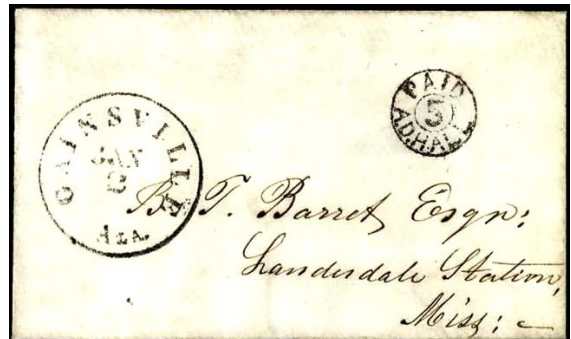 GAINSVILLE
JAN
2
ALA.
PAID
5
AD.HALL
B. T. Barret, Esqr:
Landerdale Station,
Miss: